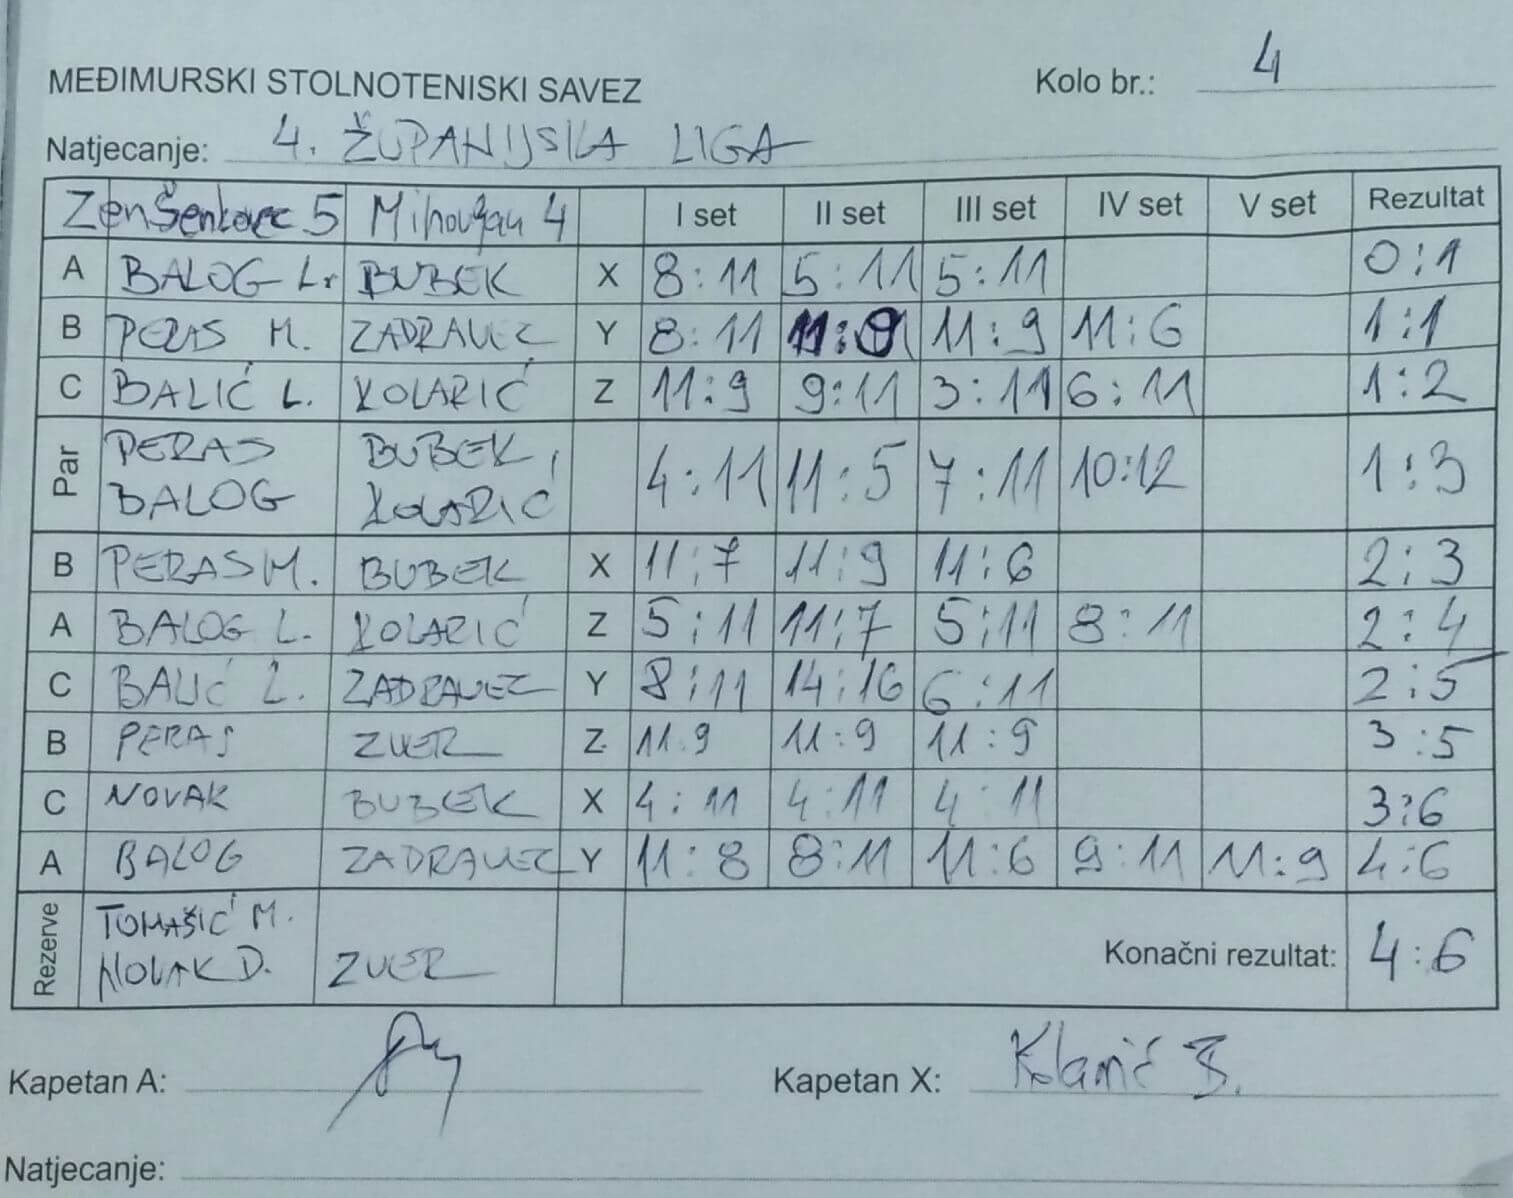 MEĐIMURSKI STOLNOTENISKI SAVEZ Kolo br.: 4
Natjecanje: 4. ŽUPANIJSKA LIGA
ZenŠenkovec 5 Mihovljan 4 I set II set III set IV set V set Rezultat
A BALOG L. BUBEK X 8:11 5:11 5:11 0:1
B PERAS M. ZADRAVEC Y 8:11 11:9 11:9 11:6 1:1
C BALIĆ L. KOLARIĆ Z 11:9 9:11 3:11 6:11 1:2
Par PERAS BUBEK, 4:11 11:5 7:11 10:12 1:3
BALOG KOLARIĆ
B PERAS M. BUBEK X 11:7 11:9 11:6 2:3
A BALOG L. KOLARIĆ Z 5:11 11:7 5:11 8:11 2:4
C BALIĆ L. ZADRAVEC Y 8:11 14:16 6:11 2:5
B PERAS ZVER Z 11:9 11:9 11:9 3:5
C NOVAK BUBEK X 4:11 4:11 4:11 3:6
A BALOG ZADRAVEC Y 11:8 8:11 11:6 9:11 11:9 4:6
Rezerve TOMAŠIĆ M.
NOVAK D. ZVER Konačni rezultat: 4:6
Kapetan A: Kapetan X: Kolarić B.
Natjecanje: